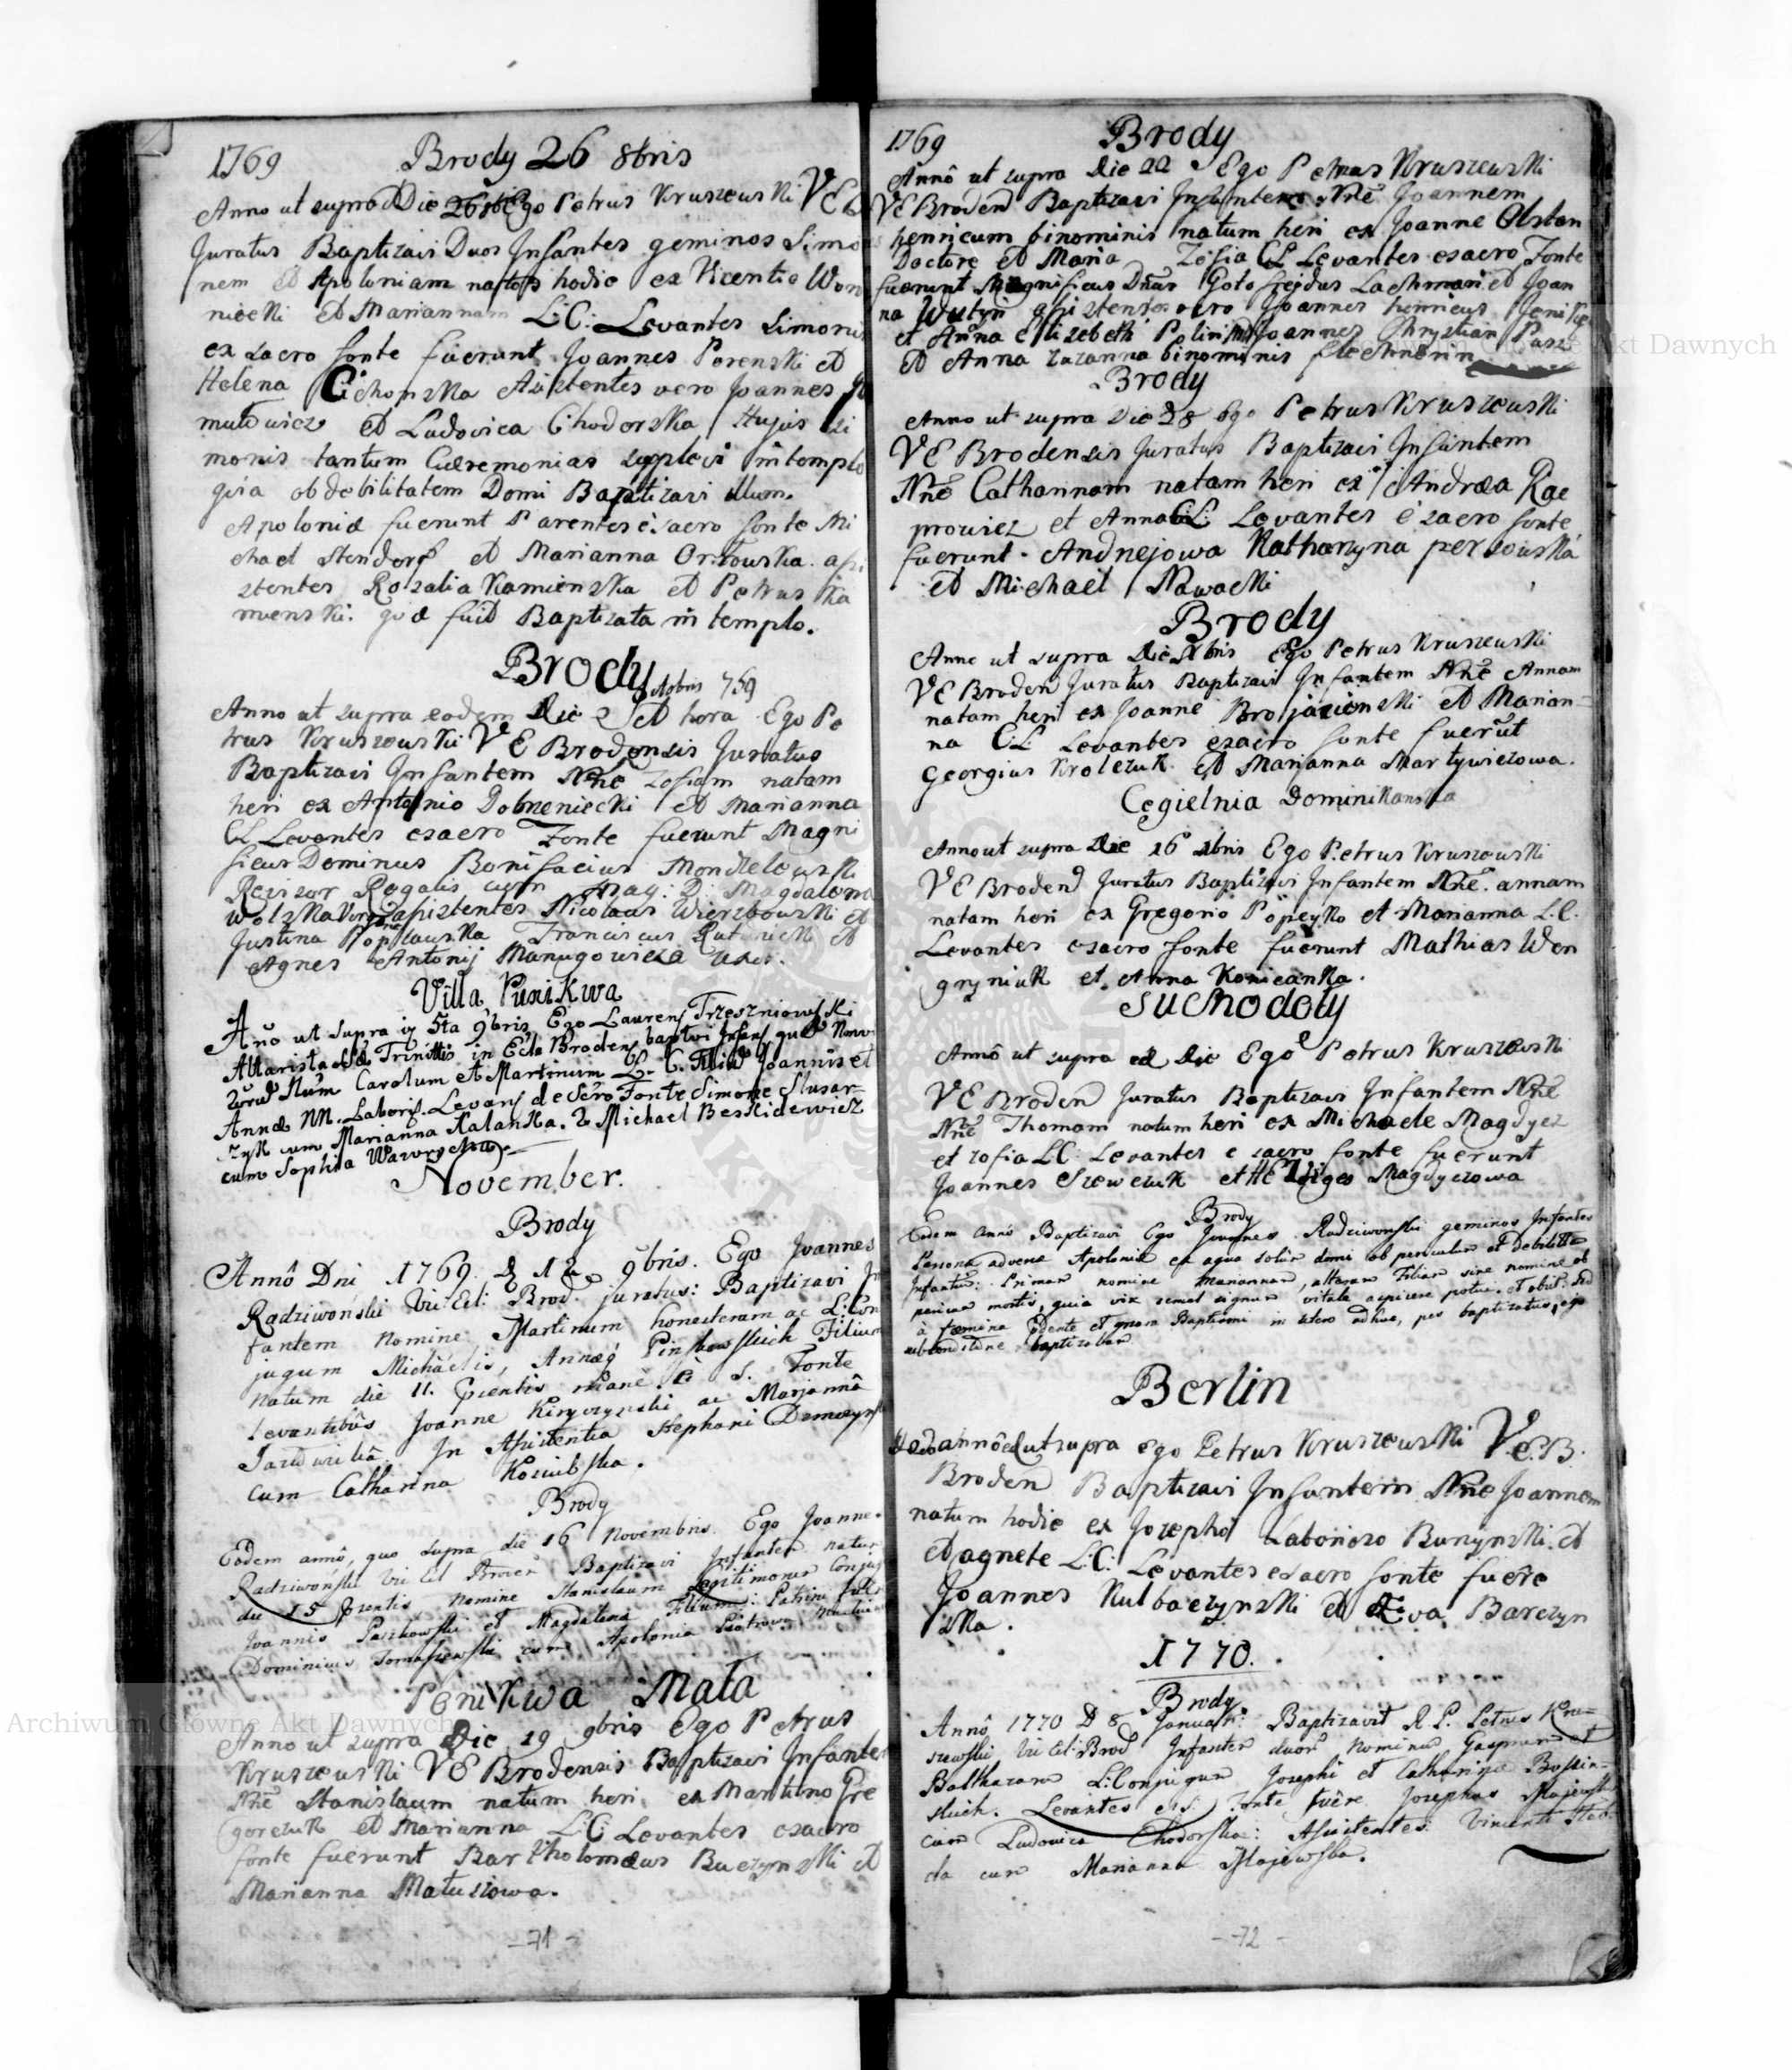 1769 Brody 26 8bris
Anno ut supra Die 26 Ego Petrus Kruszewski VEB
Juratus Baptizavi Duos Infantes geminos Simo
nem et Apoloniam natos hodie ex Vicentio Won
nicki et Mariannam L:C: Levantes Simonis
ex sacro fonte fuerunt Joannes Porenski et
Helena Cichonska Asistentes vero Joannes
mutowicz et Ludovica Chodorska Hujus Si
monis tantum Caeremonias supplevi in templo
quia ob debilitatem Domi Baptizavi illum.
Apoloniae fuerunt Parentes e sacro fonte Mi
chael Stendorf et Marianna Orłowska. asi
stentes Rozalia Kamienska et Petrus Ka
mienski. quae fuit Baptizata in templo.
Brody
Anno ut supra eodem Die 2 Ego Pe
trus Kruszewski VE Brodensis Juratus
Baptizavi Infantem Nne Zofiam natam
heri ex Antonio Dobrzeniecki et Marianna
CL Levantes esacro Fonte fuerunt Magni
ficus Dominus Bonifacius Mondzelowski
Revisor Regalis cum Mag: D: Magdalena
Wolska Virgine asistentes Nicolaus Wierzbowski et
Justina Poplauska Franciscus Rutnicki et
Agnes Antonij Manugowicza uxor.
Villa Punikwa
Ano ut supra 5ta 9bris Ego Laurens Trzeszniowski
Altarista SSae Trinittis in Ecla Broden baptvi Infans
Num Carolum et Martinum L. C. Joannis et
Annae NN. Laboris. Levans de Sero Fonte Simone Slusar-
czyk cum Marianna Kalanka. 2 Michael Beskidewicz
cum Sophia Wawrychow
November.
Brody
Annô Dni 1769. d 12 9bris. Ego Joannes
Radziwoński Vic: Ecl: Brod. juratus: Baptizavi In
fantem Nomine Martinum honestorum ac L: Con
jugum Michaelis, Annaeq Pinskowskich Filium
natum die 11. praesentis mane. è S. Fonte
levantibus Joanne Kiryczynski ac Marjanna
In Assistentia Stephani
cum Catharina Koziulska.
Brody
Eodem annô, quo supra die 16 Novembris. Ego Joannes
Radziwoński Vic Ecl Broden Baptizavi Infantem natum
die 15 praesentis nomine Stanislaum Legitimorum Conjug
Joannis Paszkowski et Magdalena Filium: Patrini
Dominicus Tomaszewski cum Apolonia Piotrowa
Ponikwa Mała
Anno ut supra Die 19 9bris Ego Petrus
Kruszewski VE Brodensis Baptizavi Infantem
Nne Stanislaum natum heri ex Martino Gre
gorczuk et Marianna L:C: Levantes esacro
fonte fuerunt Bartholomaeus Buczynski et
Marianna Matuszowa.
-71-
1769 Brody
Annô ut supra Die 22 Ego Petrus Kruszewski
VE Broden Baptizavi Infantem Nne Joannem
henricum binominis natum heri ex Joanne Olsten
Doctore et Maria Zofia CL Levantes esacro Fonte
fuerunt Magnificus Dnus Gotofrejdus Lachman et Joan
na Wutyn asistentes vero Joannes henricus
et Anna Elizebeth Joannes Chrystian
et Anna Zuzanna binominis
Brody
Anno ut supra Die 28 Ego Petrus Kruszewski
VE Brodensis Juratus Baptizavi Infantem
Nne Catharinam natam heri ex Andraea Rae
prowicz et Anna CL: Levantes è sacro fonte
fuerunt. Andrejowa Katharzyna perzowska
et Michael Nawacki
Brody
Anno ut supra Die Xbris Ego Petrus Kruszewski
VE Broden Juratus Baptizavi Infantem Nne Annam
natam heri ex Joanne Brojacienski et Marian-
na C:L: Levantes esacro fonte fuerut
Georgius Krolczuk et Marianna Martywiczowa.
Cegielnia Dominikanska
Anno ut supra Die 16 xbris Ego Petrus Kruszewski
VE Broden Juratus Baptizavi Infantem Nne. annam
natam heri ex Gregorio Popeyko et Marianna L.C.
Levantes esacro fonte fuerunt Mathias Wen
gryniuk et Anna Konicanka.
Suchodoły
Annô ut supra ed Die Ego Petrus Kruszewski
VE Broden Juratus Baptizavi Infantem Nne
Nne Thomam natum heri ex Michaele Magdycz
et Zofia L.C: Levantes e sacro fonte fuerunt
Joannes Szewczuk et Magdyczowa
Brody
Eodem anno Baptizavi Ego Joannes Radziwonski geminos Infantes
Personae advenae Apoloniae ex aqua solum domi ob periculum et debilitate
Infantum: Primam nomine Mariannam, alteram Filiam sine nomine ob
periculum mortis, quia vix semel signum vitale aspicere potui, et obiit. Sed
à faemina et gnara Baptismi in utero adhuc, pes baptizatus, ego
sub conditione baptizabam
Berlin
annô ut supra Ego Petrus Kruszewski V.E.B.
Broden Baptizavi Infantem Nne Joannem
natum hodie ex Josepho Laborioso Bunynski et
et agnete L:C: Levantes esacro fonte fuere
Joannes Kulbaczynski et Eva Barczyn
ska.
1770.
Brody
Annô 1770 D 8 Januari: Baptizavit R. P. Petrus Kru-
szewski Vic Ecl: Brod Infantes duos nomine Gasparum et
Balthazarum L: Conjugum Josephi et Catharinae Bossin-
skich. Levantes e S. Fonte fuêre Josephus Majewski
cum Ludovica Chodorska: Assistentes Vincenti
da cum Marianna Majewska.
-72-
Archiwum Główne Akt Dawnych
Archiwum Główne Akt Dawnych